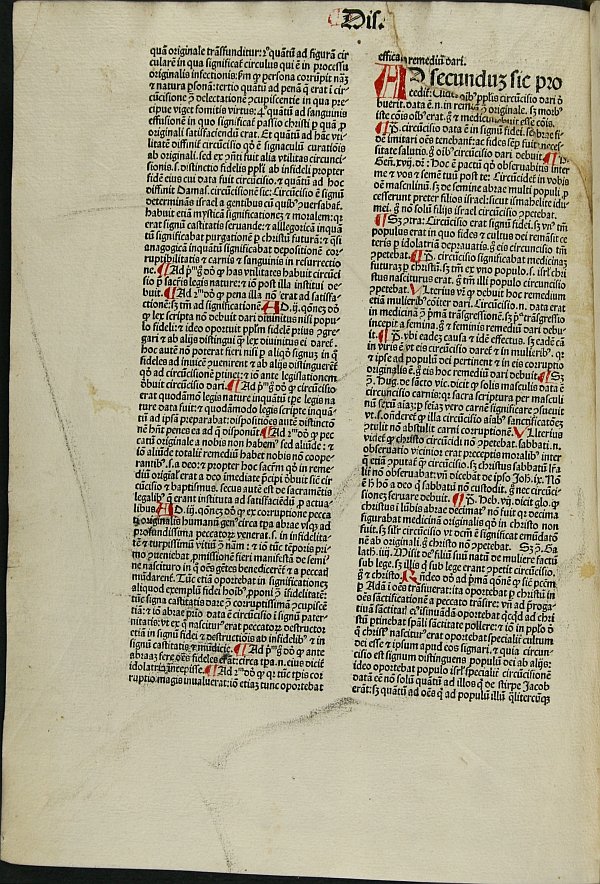 Dis.
quã originale trãsfunditur: 2º quãtũ ad figurã cir
cularẽ in qua significat̃ circulus qui ẽ in processu
originalis infectionis: persona corrũpit
et natura tertio quãtũ ad penã q̃ erat ĩ cir
cũcisione delectationẽ ꝯcupiscentie in qua pre
cipue viget fomitis virtus: 4º quãtũ ad sanguinis
effusionẽ in quo significat̃ passio christi ꝑ quã ꝓ
originali satisfaciendũ erat. Et quãtũ ad hãc vti
litatẽ diffinit̃ circũcisio ꝙ ẽ signaculũ curatiõis
ab originali. sed ex ꝯñti fuit alia vtilitas circunci
sionis. s. distinctio fidelis ppli ab infideli propter
fidẽ eius cui data fuit circũcisio. et quãtũ ad hoc
diffinit Damas. circũcisionẽ sic: Circũcisio ẽ signũ
determinãs israel a gentibus cũ quibꝰ ꝯuersabat̃.
habuit etiã mysticã significationẽ et moralem: qꝛ
erat signũ castitatis seruande: et allegoricã inquã
tũ significabat purgationẽ ꝑ christũ futurã: et
anagogicã inquãtũ significabat depositionẽ cor
ruptibilitatis et carnis et sanguinis in resurrectio
ne. ¶ Ad pᵐ dõꝫ ꝙ has vtilitates habuit circũci
sio sacrẽ legis nature: et iõ post illa institui de
buit. ¶ Ad 2ᵐ dõꝫ ꝙ pena illa nõ erat ad satisfa
ctionẽ: sꝫ tm̃ ad significationẽ. Ad .ij. qõneꝫ dõꝫ ꝙ
lex scripta nõ debuit dari diuinitus nisi popu
lo fideli: et ideo oportuit ipsm̃ fidelẽ prius ꝯgre
gari et ab alijs distingui ꝙ lex diuinitus ei daret̃.
hoc autẽ nõ poterat fieri nisi ꝑ aliqõ signũ in q̃
fideles ad inuicẽ ꝯuenirent et ab alijs distinguerẽt̃
qõ ad circũcisionẽ ptinet: et iõ ante legislationem
debuit circũcisio dari. ¶ Ad pᵐ dõꝫ ꝙ circũcisio
erat quodãmõ legis nature inquãtũ tpe legis na
ture data fuit: et quodãmodo legis scripte inquã
tũ ad ipsã preparabat: dispositiões autẽ distinctõ
nẽ hñt penes ea ad q̃ disponũt. ¶ Ad 2ᵐ dõꝫ ꝙ pec
catũ originale a nobis non habemꝰ sed aliũde: et
iõ aliũde totalit̃ remediũ habet nobis nõ coope
rantibꝰ. s. a deo: et propter hoc sacr̃m qõ in reme
diũ originał erat a deo ĩmediate p̃cipi debuit sic cir
cũcisio et baptismus. secus autẽ est de sacramẽtis
legalibꝰ q̃ erant instituta ad satisfaciẽdũ ꝓ actua
libus. Ad .iij. qõneꝫ dõꝫ ꝙ ex corruptione pecca
ti originalis humanũ genꝰ circa tpa abrae vsqꝫ ad
profundissima peccator̃ venerat. s. in infidelita
tẽ et turpissimũ vitiũ nam: et iõ tũc tẽporis pri
mo ꝯueniebat ꝓmissionẽ fieri manifestã de semi
ne nascituro in q̃ oẽs gẽtes benediceret̃ et a peccat̃
mũdarent̃. Tũc etiã oportebat in significationeꝫ
aliquod exemplũ fidei hoibꝰ ꝓponi ꝯ ifidelitatẽ:
tũc signa castitatis dare ꝯ corruptissimã ꝯcupiscẽ
tiã: et iõ abrae prio data ẽ circũcisio ĩ signũ pater
nitatis: vt ex q̃ nascitur̃ erat peccator̃ destructor
etiã in signũ fidei et destructiõis ab infidelibꝰ et in
signũ castitatis et mũdicie. ¶ Ad pᵐ dõꝫ ꝙ ante
abraaꝫ fere oẽs fideles erãt: circa tpa .n. eius dicit̃
idolatria incepisse. ¶ Ad 2ᵐ dõꝫ ꝙ qꝛ tũc tpis cor
ruptio magis inualuerat: iõ etiaꝫ tunc oportebat
efficax remediũ dari.
AD secunduꝫ sic pro
cedit̃: Videt̃ oibꝰ pplis circũcisio dari d
buerit. data ẽ .n. in remediũ originale. sꝫ morbꝰ
iste cõis oibꝰ erat. et medicina debuit esse cõis.
¶ P. circũcisio data ẽ in signũ fidei. sed abrae fi
dẽ imitari oẽs tenebant̃: ac fides sẽp fuit neces
sitate salutis. oibꝰ circũcisio dari debuit. ¶ P.
Gen̄. xvij. dẽ: Hoc ẽ pactũ qõ obseruabitis inter
me et vos et semẽ tuũ post te: Circũcidet̃ in vobis
oẽ masculinũ. sꝫ de semine abrae multi populi ꝓ
cesserunt preter filios israel: sicut ismahelite idu
mei. nõ solũ filijs israel circũcisio ꝯpetebat.
¶ Sꝫ ꝯtra: Circũcisio erat signũ fidei. sꝫ vnꝰ tm̃
populus erat in quo fides et cultus dei remãsit ce
teris ꝑ idolatriã deprauatis. eis circũcisio tm̃
ꝯpetebat. ¶ P. circũcisio significabat medicinaꝫ
futuraꝫ ꝑ christũ. sꝫ tm̃ ex vno populo. s. isrł chri
stus nasciturus erat. illi populo circũcisio
ꝯpetebat. Vlterius vr̃ ꝙ debuit hoc remedium
etiã mulieribꝰ cõiter dari. Circũcisio .n. data erat
in medicinã ꝯ primã trãsgressionẽ. sꝫ trãsgressio
incepit a femina. et feminis remediũ dari debu
it. ¶ P. vbi eadeꝫ causa et idẽ effectus. sꝫ eadẽ cã
in viris ẽ vt eis circũcisio daret̃ et in mulieribꝰ. qꝛ
et ipse ad populũ dei pertinent et in eis corruptio
originalis ẽ. etis hoc remediũ dari debuit. ¶ Sꝫ
ꝯ. Hug. de sãcto vic. dicit ꝙ solis masculis data ẽ
circũcisio carnis: qꝛ sacra scriptura per masculi
nũ sexũ aiaꝫ: ꝑ feiaꝫ vero carnẽ significare ꝯsueuit
vt .s. oñderet̃ ꝙ illa circũcisio aiabꝰ sanctificatõeꝫ
ꝯtulit nõ abstulit carni corruptionẽ. Vlterius
videt̃ ꝙ christo circũcidi nõ ꝯpetebat. sabbati .n.
obseruatio vicinior erat preceptis moralibꝰ inter
q̃ etiã ꝯputat̃ ꝙ circũcisio. sꝫ christus sabbatũ lr̃a
lit̃ nõ obseruabat: vñ dicebãt de ipso Joh. ix. Nõ
ẽ hõ a deo q̃ sabbatũ nõ custodit. nec circũci
sioneꝫ seruare debuit. ¶ P. Heb. vij. dicit glo. ꝙ
christus ĩ lũbis abrae decimatꝰ nõ fuit: qꝛ decima
figurabat medicinã originalis qõ in christo non
fuit. sꝫ silr̃ circũcisio vt dem̃ ẽ significat emũdatõ
nẽ ab originali. christo nõ ꝯpetebat. Sꝫ ꝯ. Ga
lath. iiij. Misit deꝰ filiũ suũ natũ de muliere factũ
sub lege. sꝫ illis q̃ sub lege erant ꝯpetit circũcisio.
et christo. Rñdeo dõꝫ ad primã qõnẽ ꝙ sic pec̃m
ꝑ Adã ĩ oẽs trãsiuerat: ita oportebat ꝑ christũ in
oẽs sãctificationẽ a peccato trãsire: vñ ad ꝓroga
tiuã sãctitat̃ eiꝰ insinuãdã oportebat qcqd ad chri
stũ ptinebat spãli sãctitate pollere: et iõ in pplo d
q̃ christꝰ nasciturꝰ erat oportebat specialit̃ cultum
dei esse et ipsum apud eos signari. et quia circun
cisio est signum distinguens populũ dei ab alijs:
ideo oportebat populo isrł specialit̃ circũcisionẽ
datã eẽ nõ solũ quãtũ ad illos q̃ de stirpe Jacob
erãt: sꝫ quãtũ ad oẽs q̃ ad populũ illũ qlitercũqꝫ